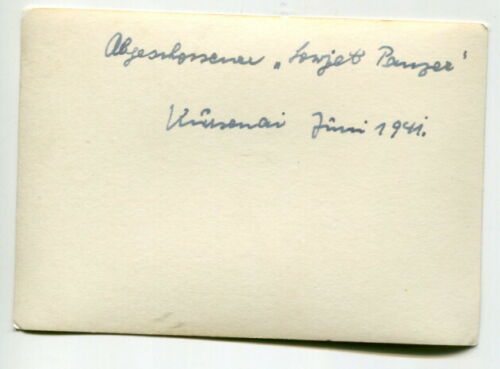 Abgeschossener „Sowjet Panzer“
Juni 1941.